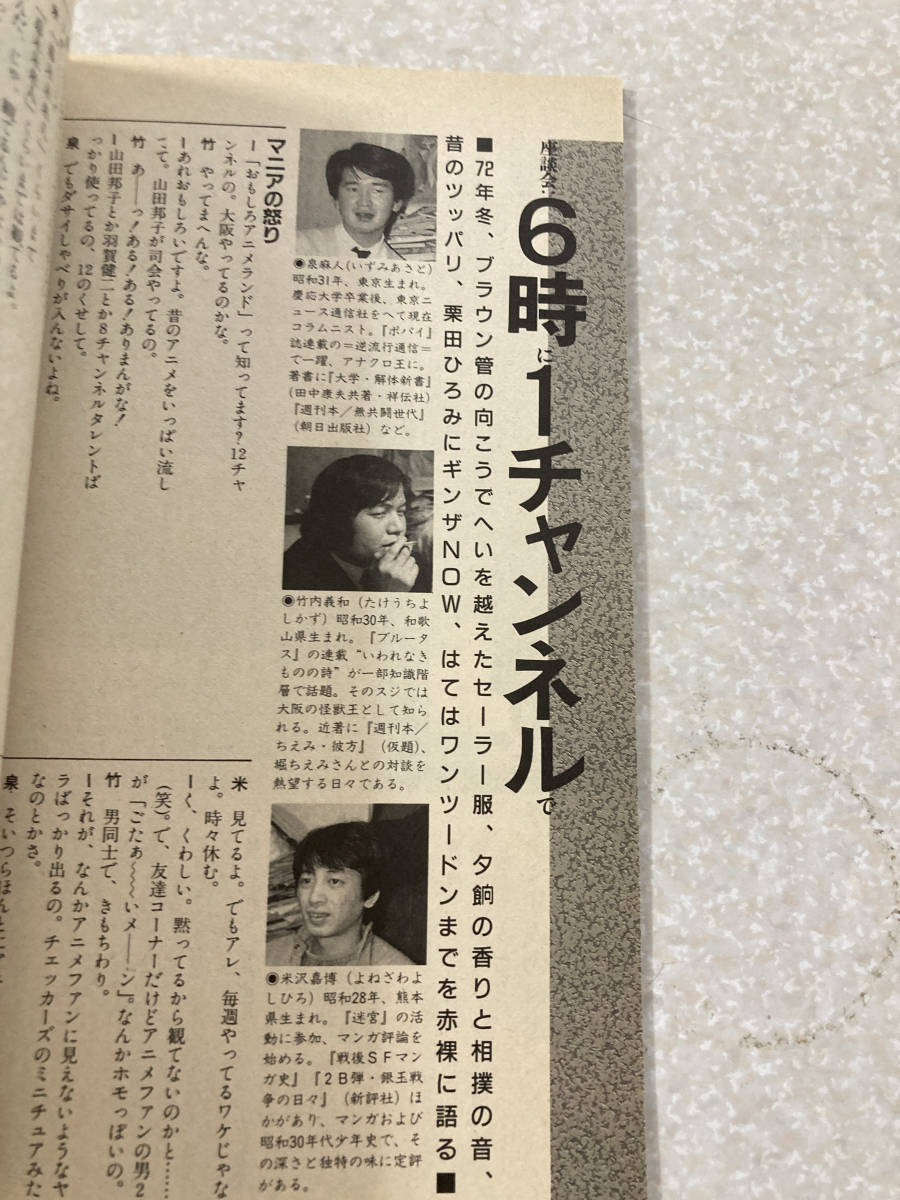 座談会・6時に1チャンネルで
■72年冬、ブラウン管の向こうでへいを越えたセーラー服、夕餉の香りと相撲の音、
昔のツッパリ、栗田ひろみにギンザNOW、はてはワンツードンまでを赤裸に語る■
◉泉麻人(いずみあさと)
昭和31年、東京生まれ。
慶応大学卒業後、東京ニ
ュース通信社をへて現在
コラムニスト。『ポパイ』
誌連載の＝逆流行通信＝
で一躍、アナクロ王に。
著書に『大学・解体新書』
(田中康夫共著・祥伝社)
『週刊本／無共闘世代』
(朝日出版社)など。
◉竹内義和(たけうちよ
しかず)昭和30年、和歌
山県生まれ。『ブルータ
ス』の連載“いわれなき
ものの詩”が一部知識階
層で話題。そのスジでは
大阪の怪獣王として知ら
れる。近著に『週刊本／
ちえみ・彼方』(仮題)、
堀ちえみさんとの対談を
熱望する日々である。
◉米沢嘉博(よねざわよ
しひろ)昭和28年、熊本
県生まれ。『迷宮』の活
動に参加、マンガ評論を
始める。『戦後SFマン
ガ史』『2B弾・銀玉戦
争の日々』(新評社)ほ
かがあり、マンガおよび
昭和30年代少年史で、そ
の深さと独特の味に定評
がある。
マニアの怒り
ー「おもしろアニメランド」って知ってます?12チャ
ンネルの。大阪やってるのかな。
竹 やってまへんな。
ーあれおもしろいですよ。昔のアニメをいっぱい流し
てて。山田邦子が司会やってるの。
竹 あ──っ!ある!ある!ありまんがな!
ー山田邦子とか羽賀健二とか8チャンネルタレントば
っかり使ってるの、12のくせして。
泉 でもダサイしゃべりが入んないよね。
米 見てるよ。でもアレ、毎週やってるワケじゃな
よ。時々休む。
ーく、くわしい。黙ってるから観てないのかと……
(笑)。で、友達コーナーだけどアニメファンの男2
が「ごたぁ〜〜〜いメ──ン」。なんかホモっぽいの。
竹 男同士で、きもちわり。
ーそれが、なんかアニメファンに見えないようなヤ
ラばっかり出るの。チェッカーズのミニチュアみた
なのとかさ。
泉 そいつらほんと